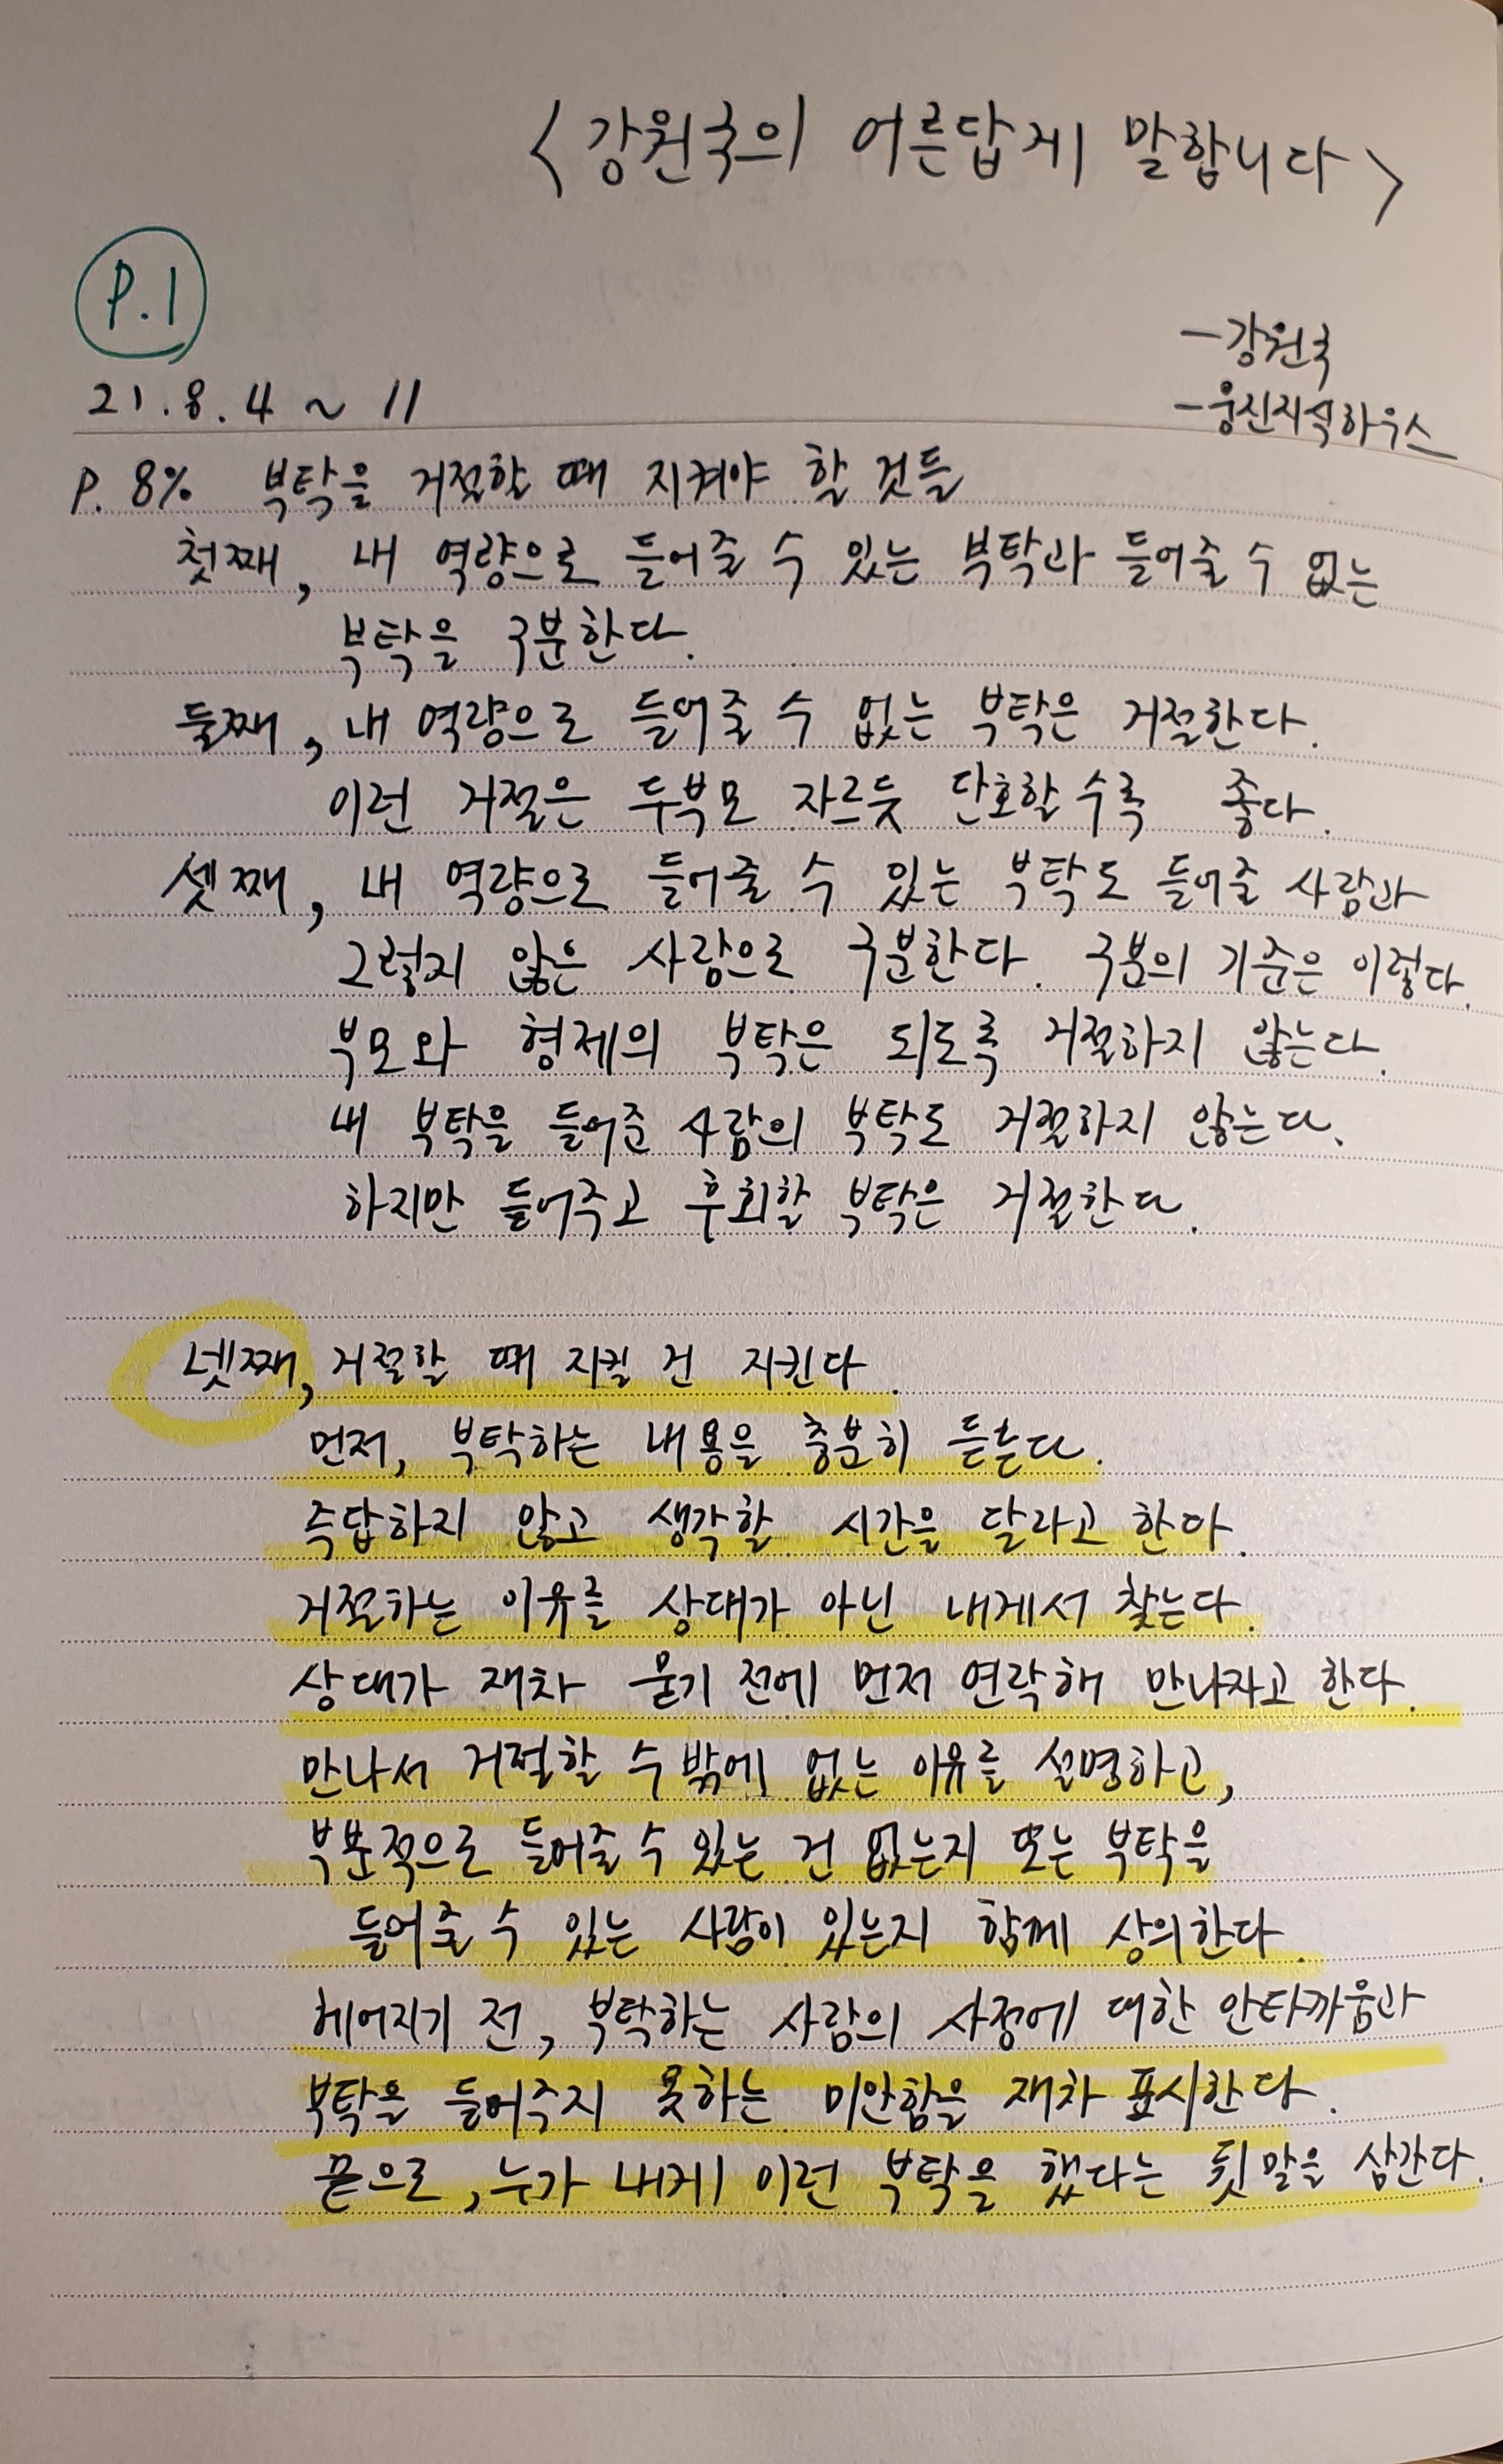 <강원국의 어른답게 말합니다>
P.1
-강원국
-웅진지식하우스
21.8.4 ~ 11
P. 8% 부탁을 거절할 때 지켜야 할 것들
첫째, 내 역량으로 들어줄 수 있는 부탁과 들어줄 수 없는
부탁을 구분한다.
둘째, 내 역량으로 들어줄 수 없는 부탁은 거절한다.
이런 거절은 두부모 자르듯 단호할수록 좋다.
셋째, 내 역량으로 들어줄 수 있는 부탁도 들어줄 사람과
그렇지 않은 사람으로 구분한다. 구분의 기준은 이렇다.
부모와 형제의 부탁은 되도록 거절하지 않는다.
내 부탁을 들어준 사람의 부탁도 거절하지 않는다.
하지만 들어주고 후회할 부탁은 거절한다.
넷째, 거절할 때 지킬 건 지킨다.
먼저, 부탁하는 내용을 충분히 듣는다.
즉답하지 않고 생각할 시간을 달라고 한다.
거절하는 이유를 상대가 아닌 내게서 찾는다.
상대가 재차 묻기 전에 먼저 연락해 만나자고 한다.
만나서 거절할 수밖에 없는 이유를 설명하고,
부분적으로 들어줄 수 있는 건 없는지 또는 부탁을
들어줄 수 있는 사람이 있는지 함께 상의한다.
헤어지기 전, 부탁하는 사람의 사정에 대한 안타까움과
부탁을 들어주지 못하는 미안함을 재차 표시한다.
끝으로, 누가 내게 이런 부탁을 했다는 뒷말을 삼간다.